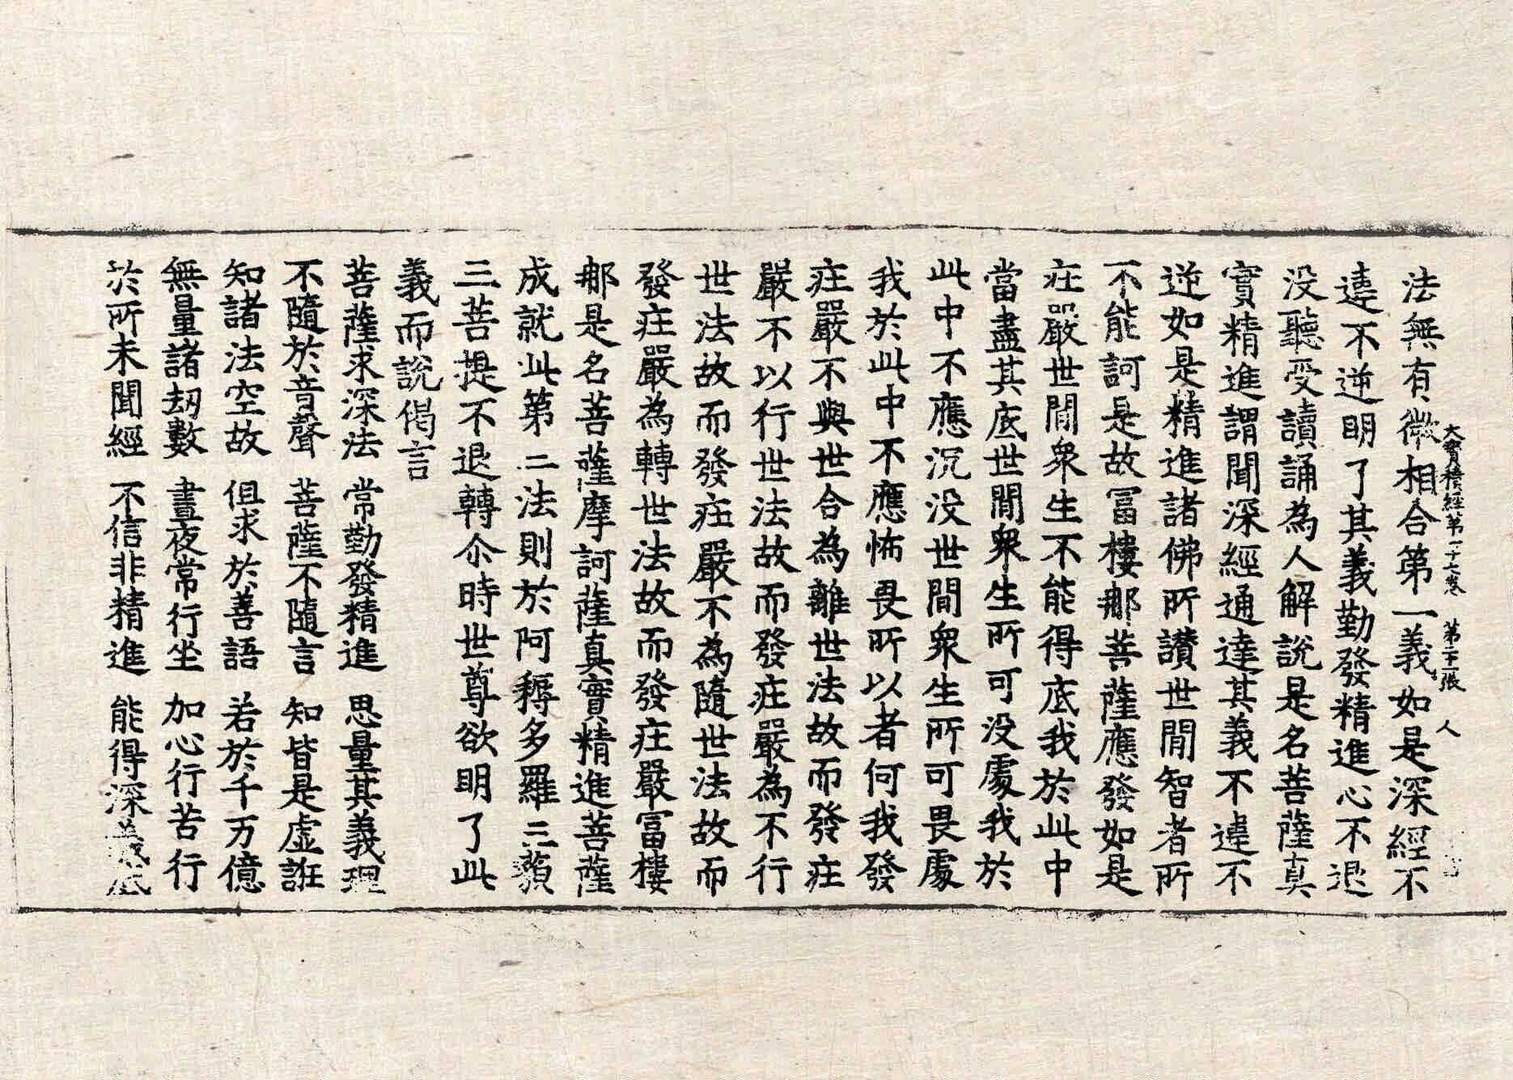 大寶積經第七十七卷 第二十一張 人
法無有微相合第一義如是深經不
違不逆明了其義勤發精進心不退
没聽受讀誦為人解說是名菩薩真
實精進謂聞深經通達其義不違不
逆如是精進諸佛所讃世間智者所
不能訶是故冨樓那菩薩應發如是
庄嚴世間衆生不能得底我於此中
當盡其底世間衆生所可没處我於
此中不應沉没世間衆生所可畏處
我於此中不應怖畏所以者何我發
庄嚴不與世合為離世法故而發庄
嚴不以行世法故而發庄嚴為不行
世法故而發庄嚴不為隨世法故而
發庄嚴為轉世法故而發庄嚴冨樓
那是名菩薩摩訶薩真實精進菩薩
成就此第二法則於阿耨多羅三藐
三菩提不退轉尒時世尊欲明了此
義而說偈言
菩薩求深法 常勤發精進 思量其義理
不隨於音聲 菩薩不隨言 知皆是虛誑
知諸法空故 但求於善語 若於千万億
無量諸劫數 晝夜常行坐 加心行苦行
於所未聞經 不信非精進 能得深義底